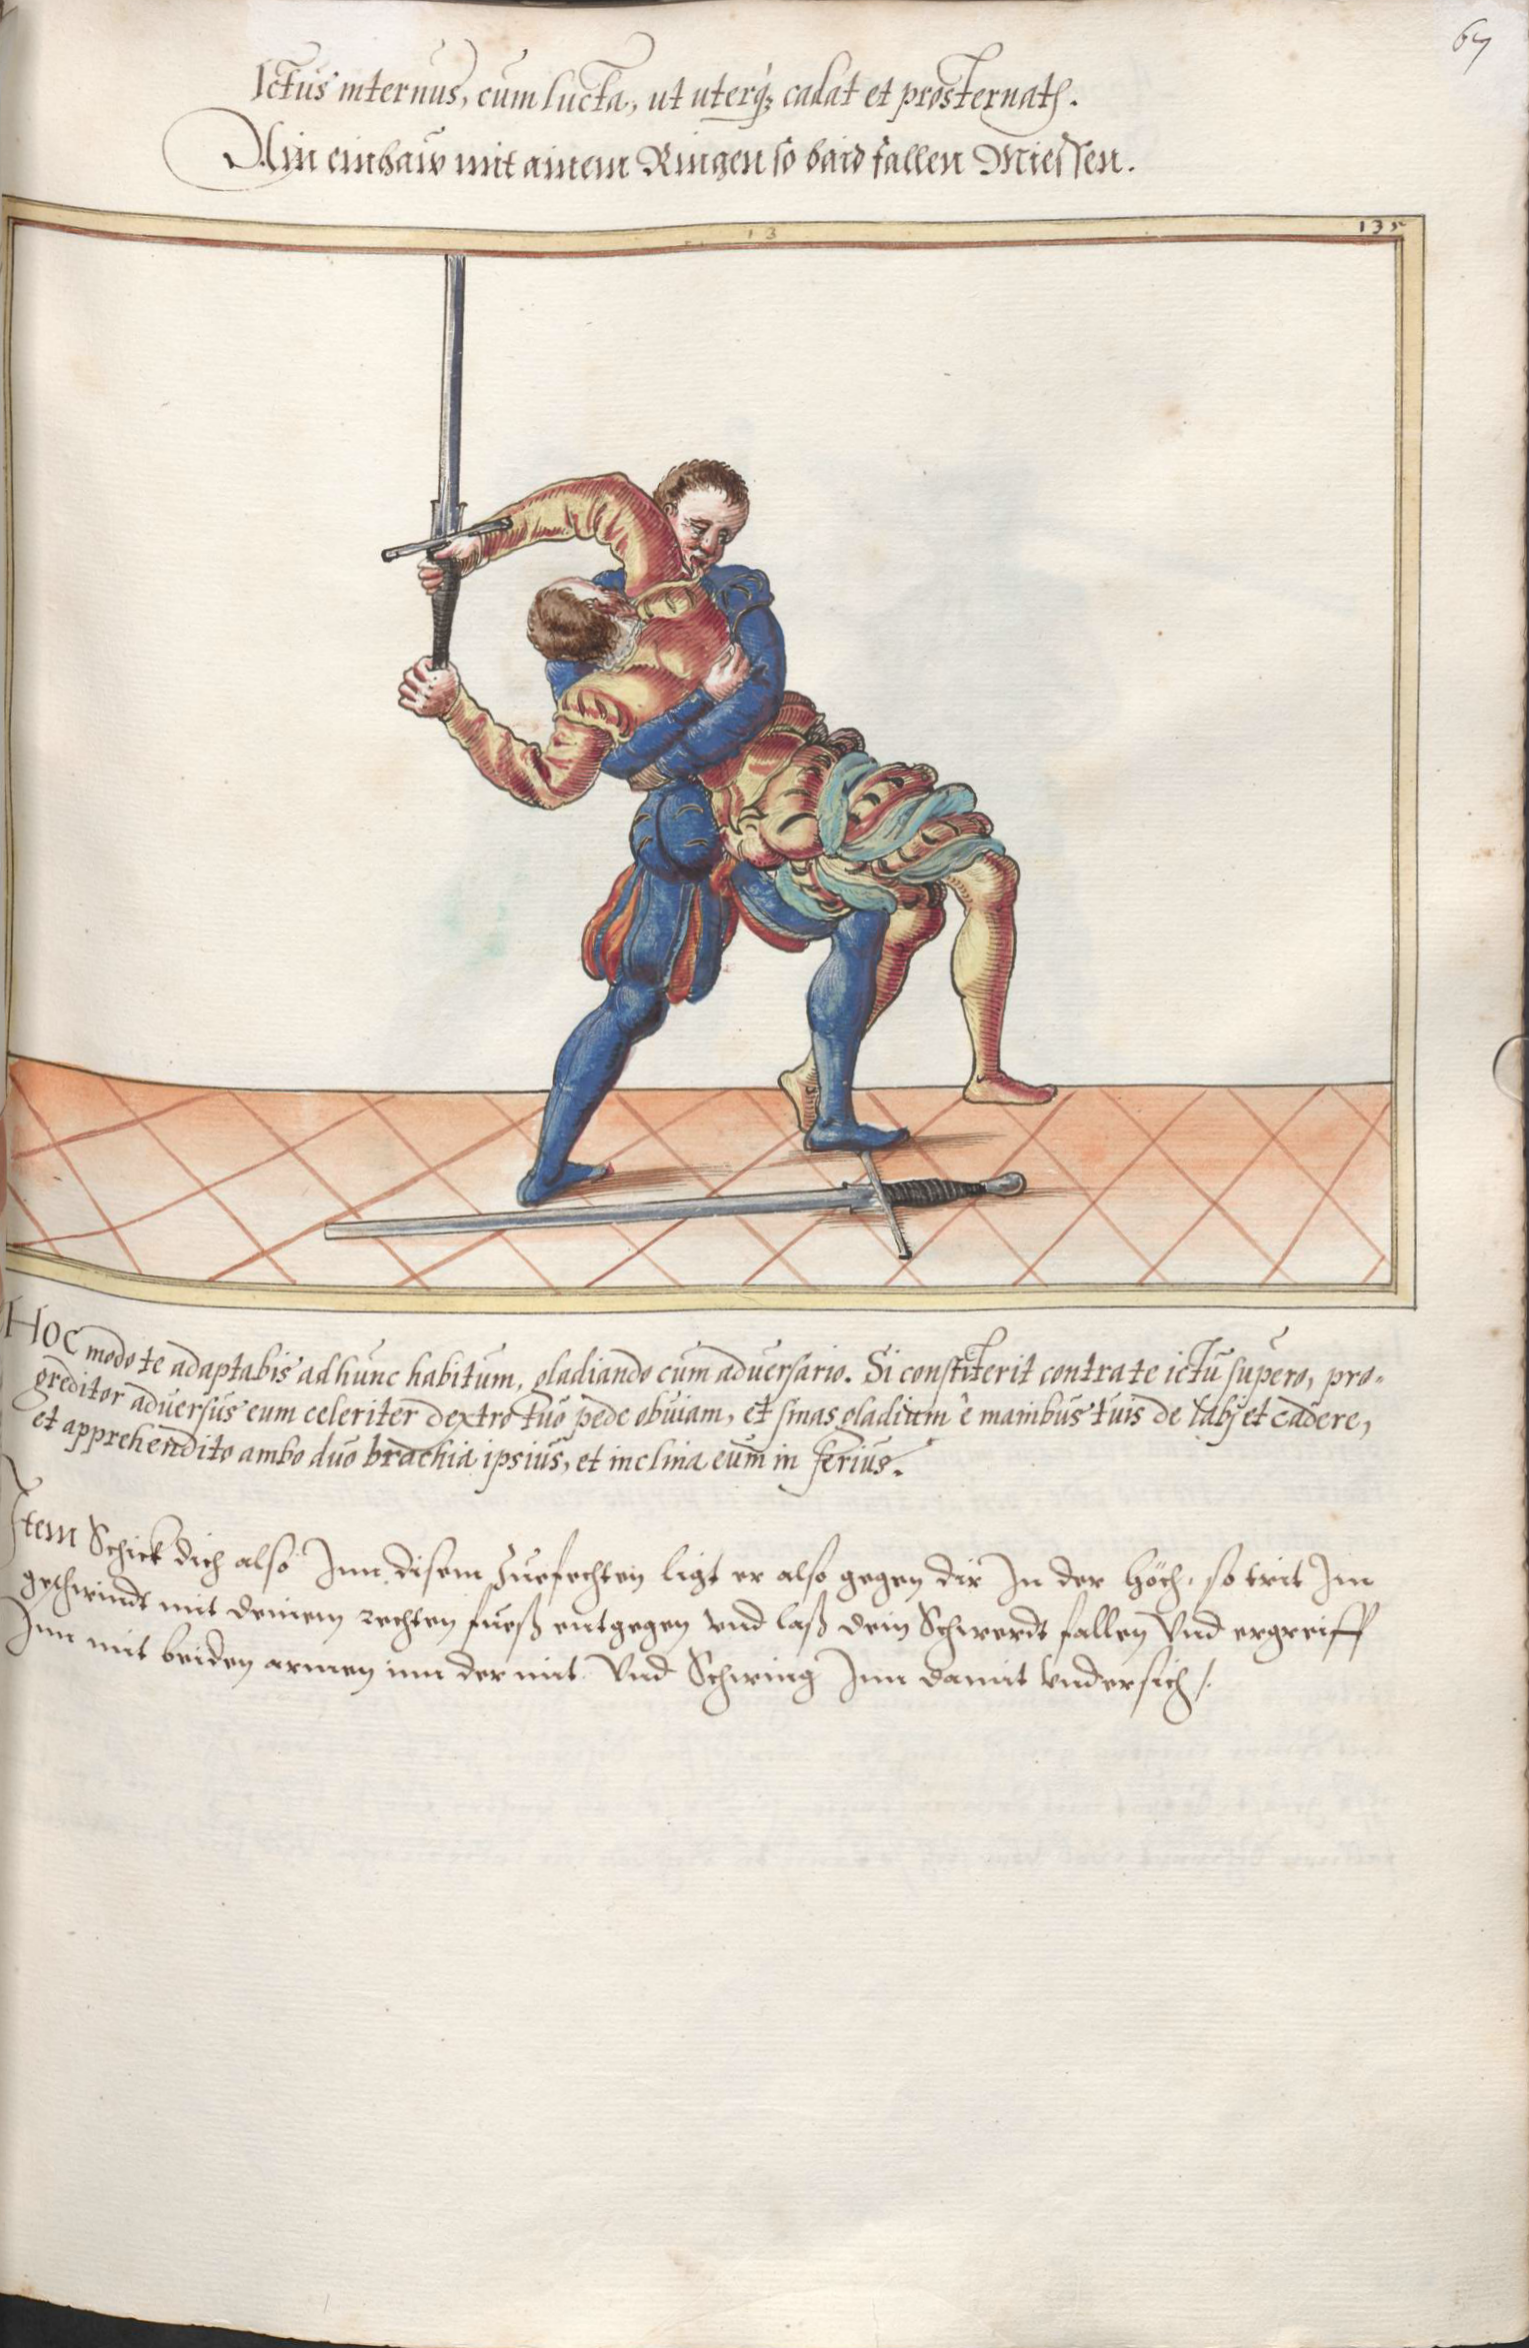 67
Ictus internus, cum lucta, ut uterq3 cadat et prosternatr.
Ain einhaw mit ainem Ringen so baid fallen Miessen.
13
135
Hoc modo te adaptabis ad hunc habitum, gladiando cum aduersario. Si constiterit contra te ictu supero, pro-
greditor aduersus eum celeriter dextro tuo pede obuiam, et sinas gladium è manibus tuis de labj et cadere,
et apprehendito ambo duo brachia ipsius, et inclina eum in ferius.
Item Schick dich also Inn disem Zuefechten ligt er also gegen dir In der höch, so trit Im
geschwindt mit deinem rechten fueß entgegen vnd laß dein Schwerdt fallen Vnd ergreiff
Inn mit beiden armen inn der mit Vnd Schwing Inn damit vndersich /.